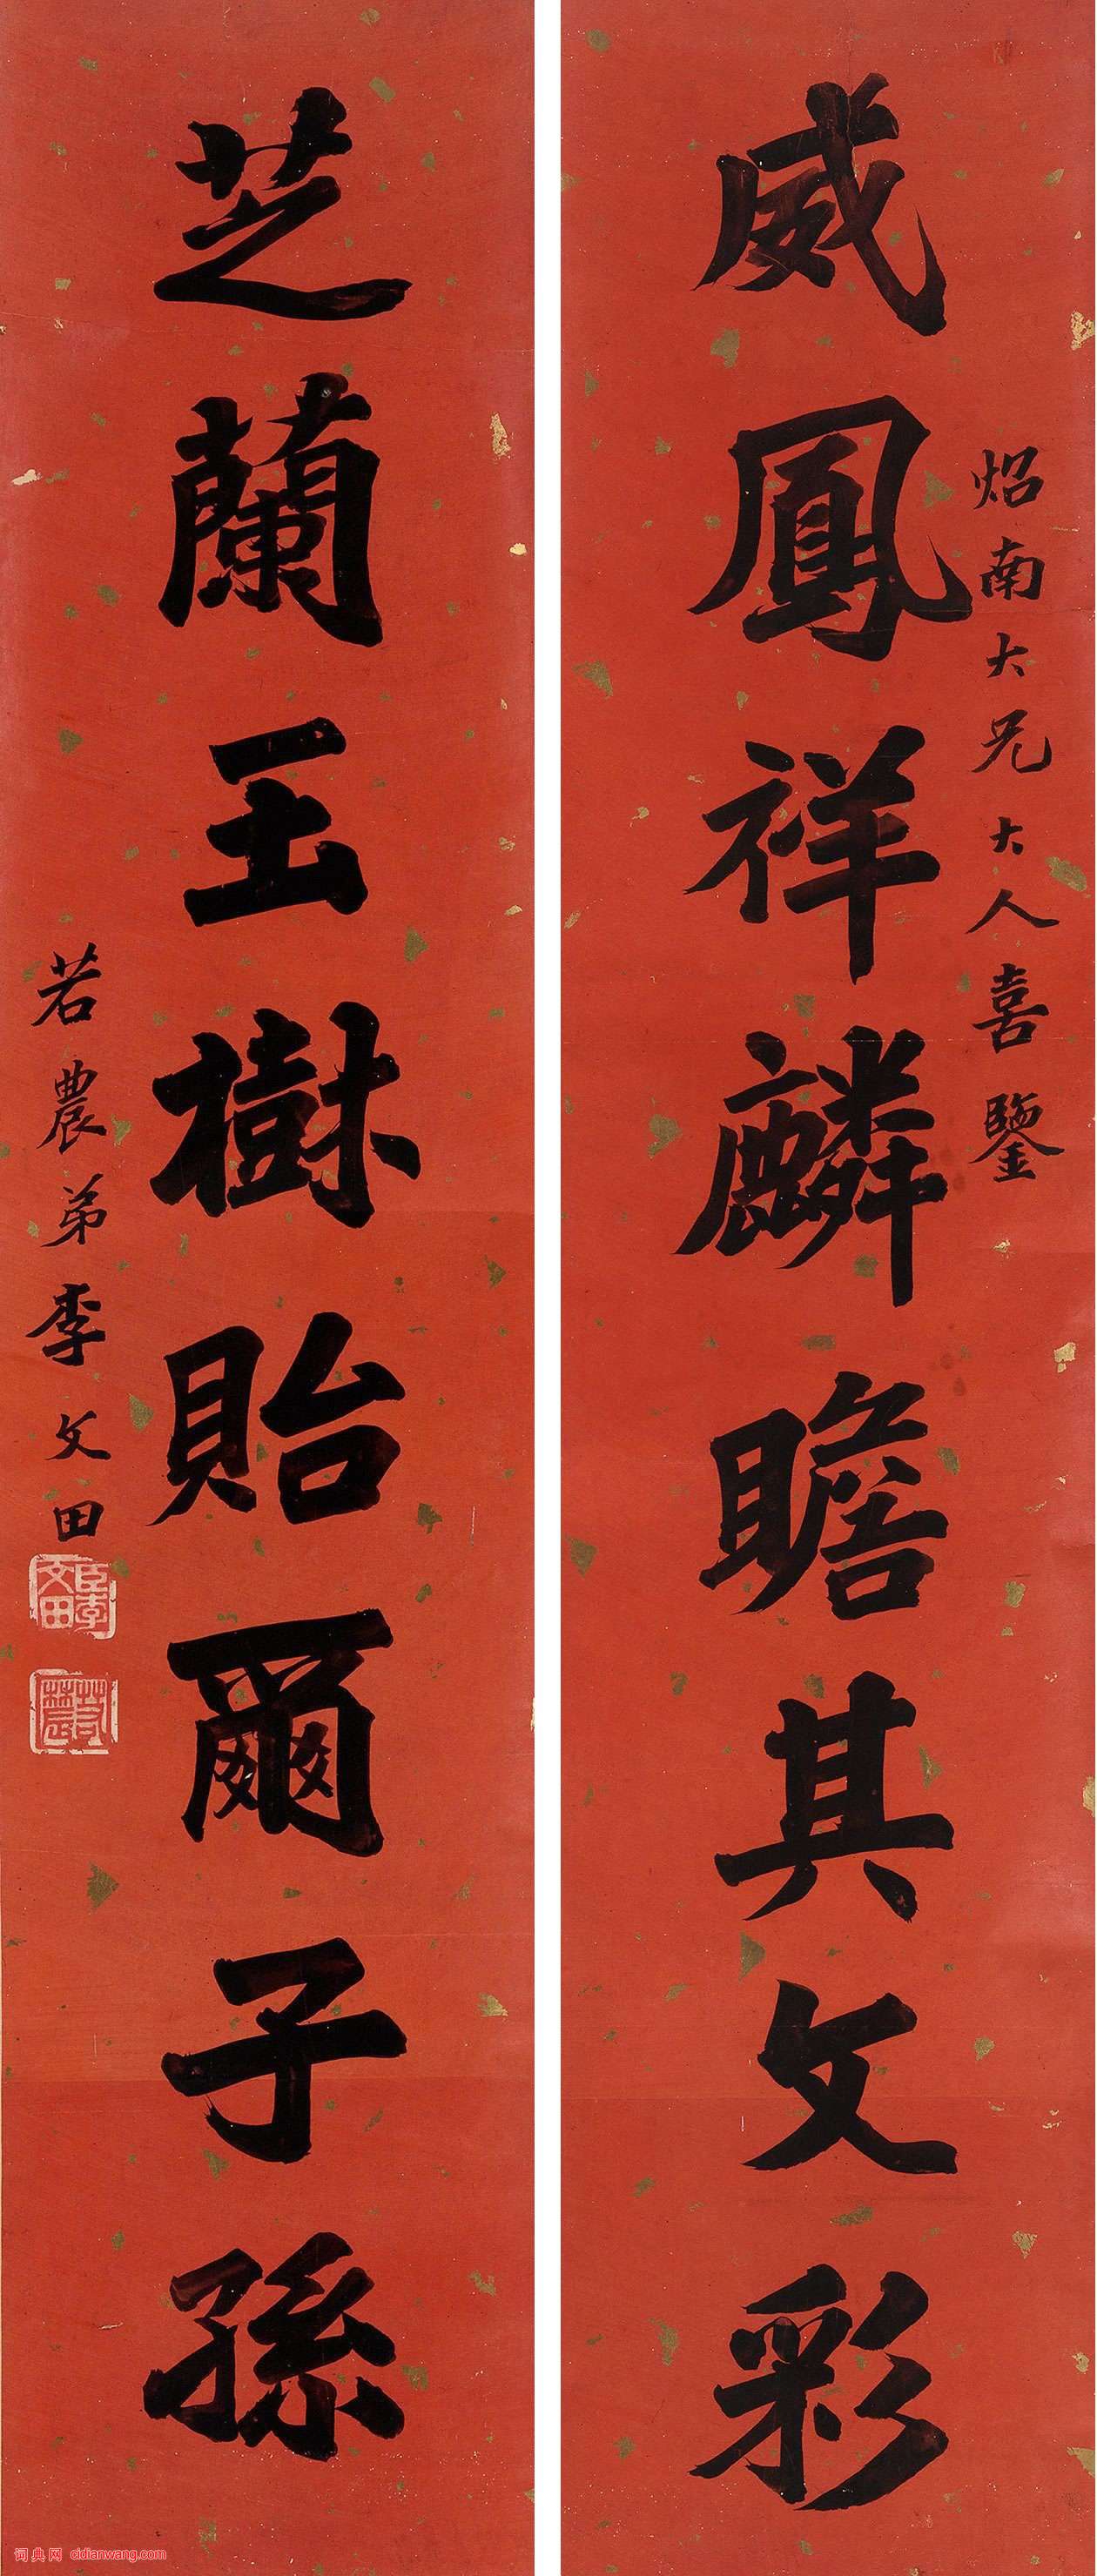 炤南大兄大人喜鑒
威鳳祥麟瞻其文彩
芝蘭玉樹貽爾子孫
若農弟李文田
臣李文田
若農
词典网 cidianwang.com